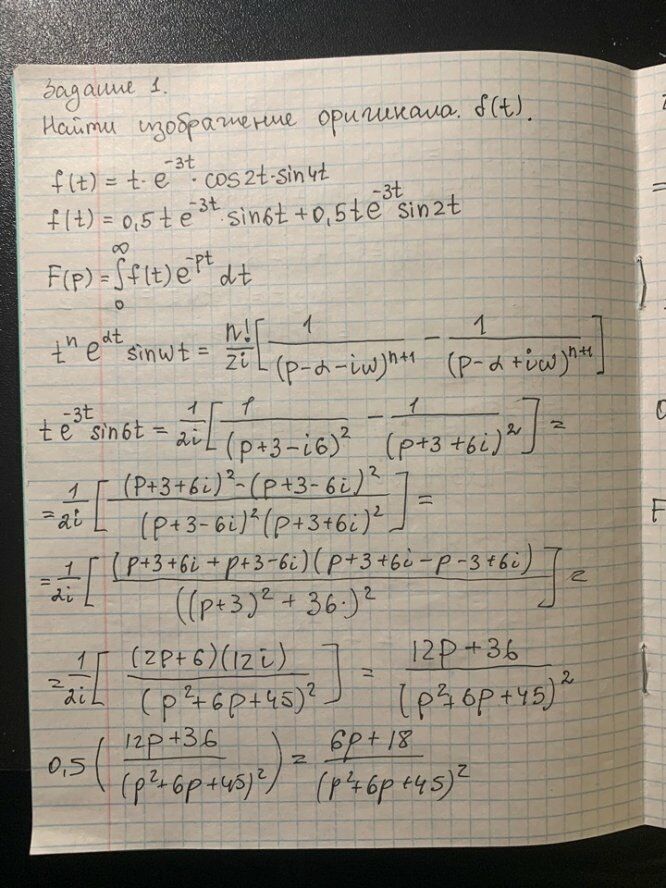 Задание 1.
Найти изображение оригинала f(t).
f(t) = t · e^{-3t} · cos2t · sin4t
f(t) = 0,5 t e^{-3t} · sin6t + 0,5 t e^{-3t} sin2t
F(p) = ∫_0^∞ f(t) e^{-pt} dt
t^n e^{αt} sinωt = n!/2i [ 1/(p-α-iω)^{n+1} - 1/(p-α+iω)^{n+1} ]
t e^{-3t} sin6t = 1/2i [ 1/(p+3-i6)^2 - 1/(p+3+6i)^2 ] =
= 1/2i [ ((p+3+6i)^2-(p+3-6i)^2)/((p+3-6i)^2 (p+3+6i)^2) ] =
= 1/2i [ ((p+3+6i+p+3-6i)(p+3+6i-p-3+6i))/((p+3)^2+36·)^2 ] =
= 1/2i [ ((2p+6)(12i))/(p^2+6p+45)^2 ] = (12p+36)/(p^2+6p+45)^2
0,5 ( (12p+36)/(p^2+6p+45)^2) ) = (6p+18)/(p^2+6p+45)^2